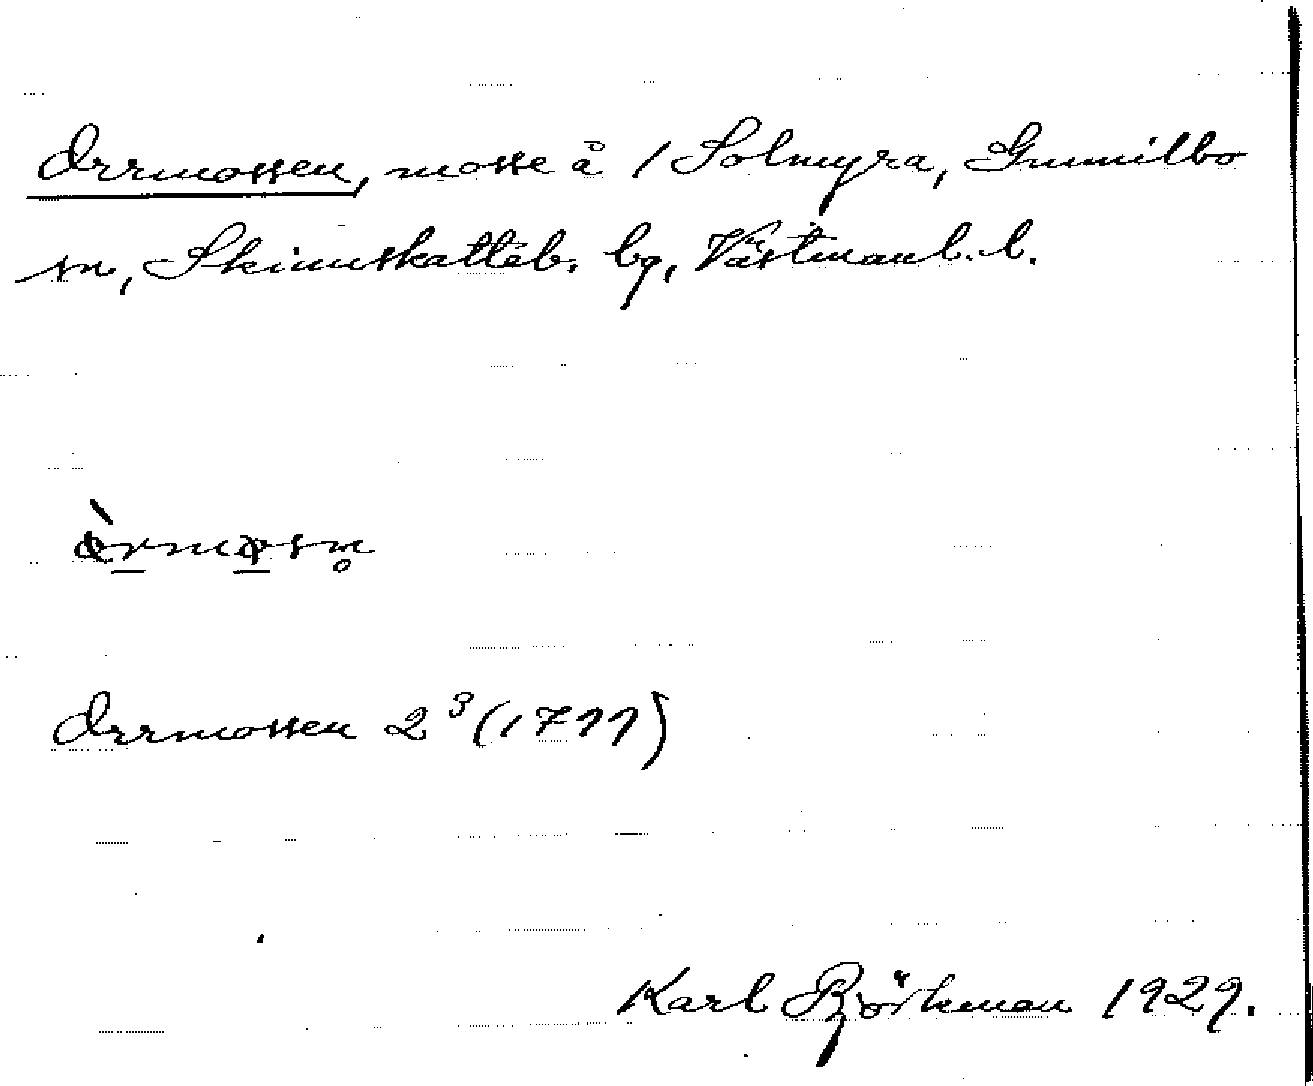 Orrmossen, mosse å 1 Solmyra, Gunnilbo
sn, Skinnskatteb. bg, Västmanl. l.
Orrmossen 2³ (1777)
Karl Björkman 1929.